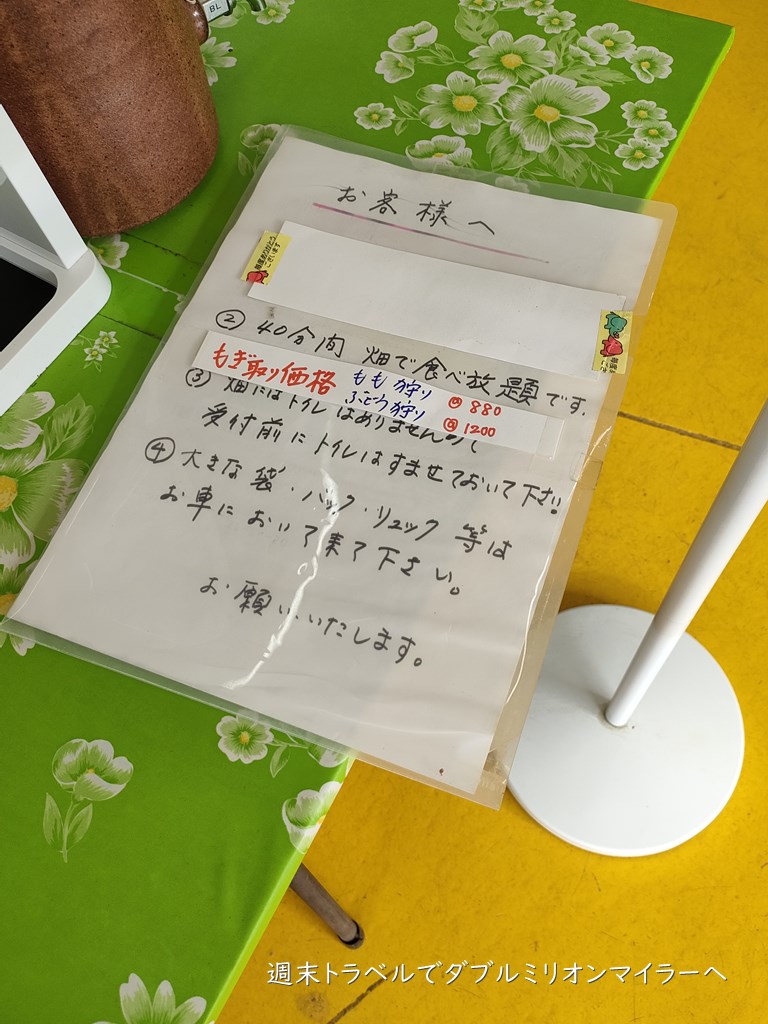 BL
お客様へ
毎度ありがとうございます
② 40分間 畑で食べ放題です。
もぎ取り価格 もも狩り ㊀ 880
ぶどう狩り ㊀ 1200
③ 畑にはトイレはありませんので
受付前にトイレはすませておいて下さい。
④ 大きな袋・バック・リュック 等は
お車において来て下さい。
お願いいたします。
週末トラベルでダブルミリオンマイラーへ